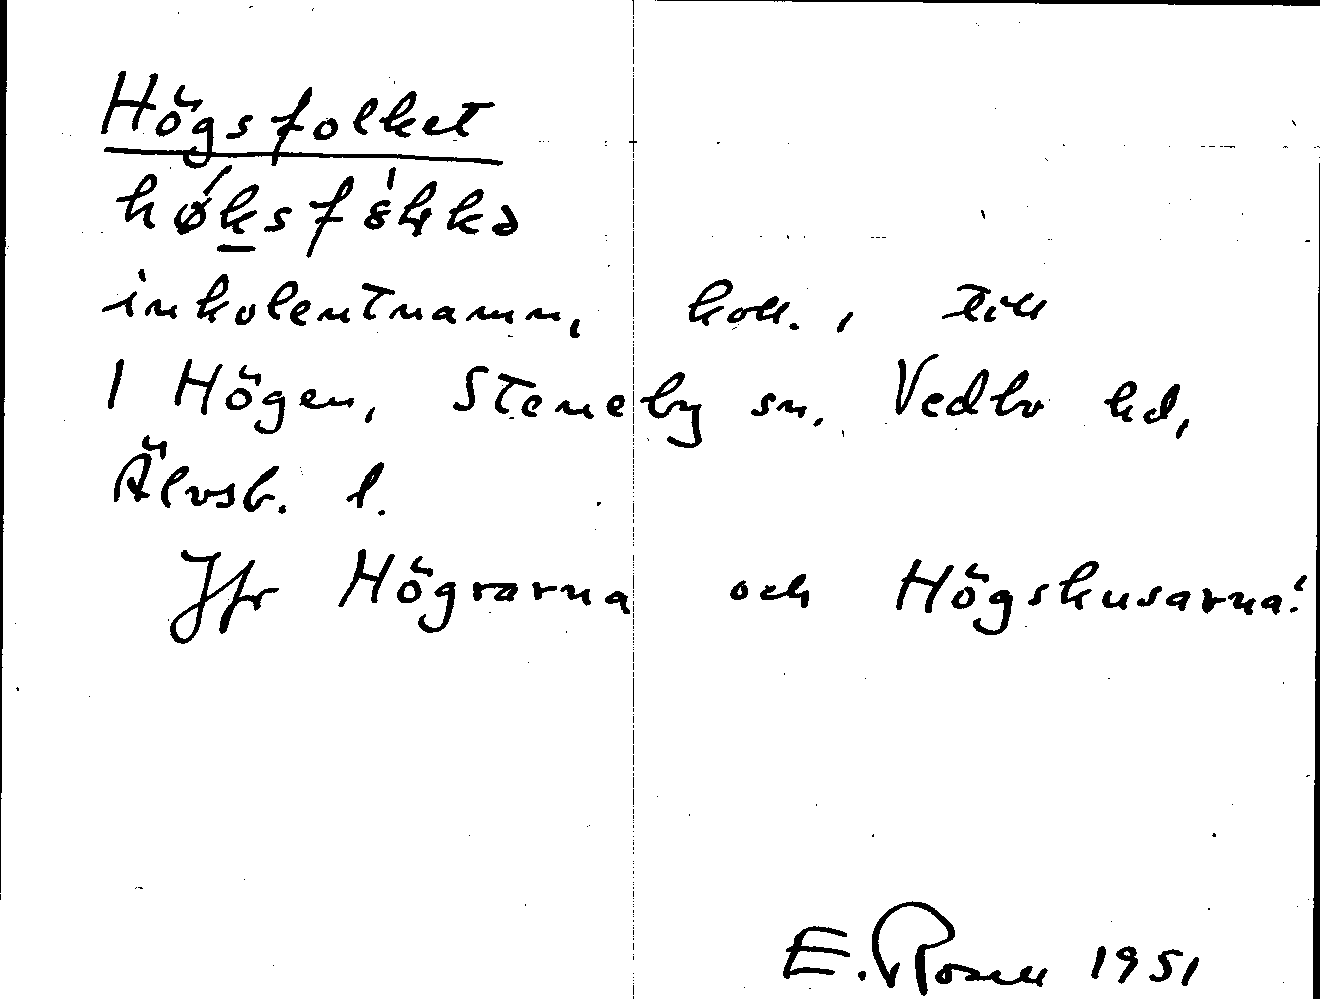 Högsfolket
inkolentnamn, koll., till
1 Högen, Steneby sn. Vedbo hd,
Älvsb. l.
Jfr Högrarna och Högshusarna!
E. Rosell 1951